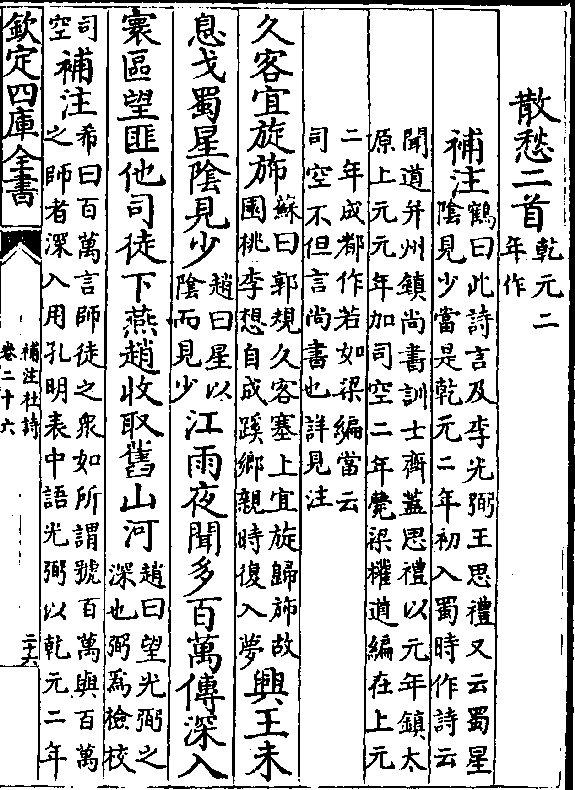 散愁二首乾元二
年作
補注鶴曰此詩言及李光弼王思禮又云蜀星
陰見少當是乾元二年初入蜀時作詩云
聞道并州鎮尚書訓士齊蓋思禮以元年鎮太
原上元元年加司空二年薨梁權道編在上元
二年成都作若如梁編當云
司空不但言尚書也詳見注
久客宜旋斾蘇曰郭規久客塞上宜旋歸斾故
園桃李想自成蹊鄉親時復入夢興王未
息戈蜀星陰見少趙曰星以
陰而見少江雨夜聞多百萬傳深入
寰區望匪他司徒下燕趙收取舊山河趙曰望光弼之
深也弼為檢校
司
空補注希曰百萬言師徒之衆如所謂號百萬與百萬
之師者深入用孔明表中語光弼以乾元二年
欽定四庫全書
補注杜詩
卷二十六